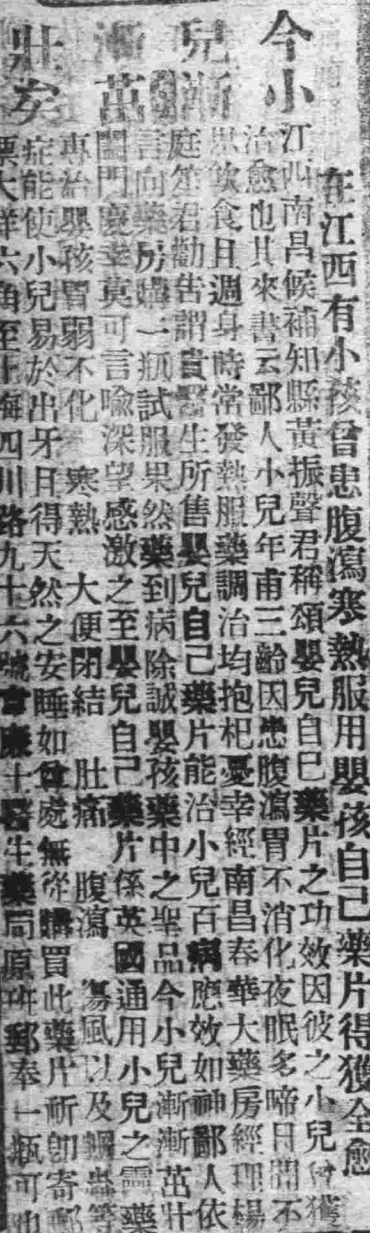 今小兒漸漸茁壯矣
在江西有小孩曾患腹瀉寒熱服用嬰孩自己藥片得獲全愈
江西南昌候補知縣黃振聲君稱頌嬰兒自己藥片之功效因彼之小兒曾獲
治愈也其來書云鄙人小兒年甫三齡因患腹瀉胃不消化夜眠多啼日間不
思飲食且週身時常發熱服藥調治均抱杞憂幸經南昌春華大藥房經理楊
庭笙君勸告謂貴醫生所售嬰兒自己藥片能治小兒百病應效如神鄙人依
言向藥房購一瓶試服果然藥到病除誠嬰孩藥中之聖品今小兒漸漸茁壯
闔門慶幸莫可言喻深望感激之至嬰兒自己藥片係英國通用小兒之靈藥
專治嬰孩胃弱不化 寒熱 大便閉結 肚痛 腹瀉 傷風以及蟲等
症能使小兒易於出牙日得天然之安睡如處無從購買此藥片祈卽寄郵
票大洋六角至上海四川路九十六號廉士醫生藥局原班郵奉一瓶可也